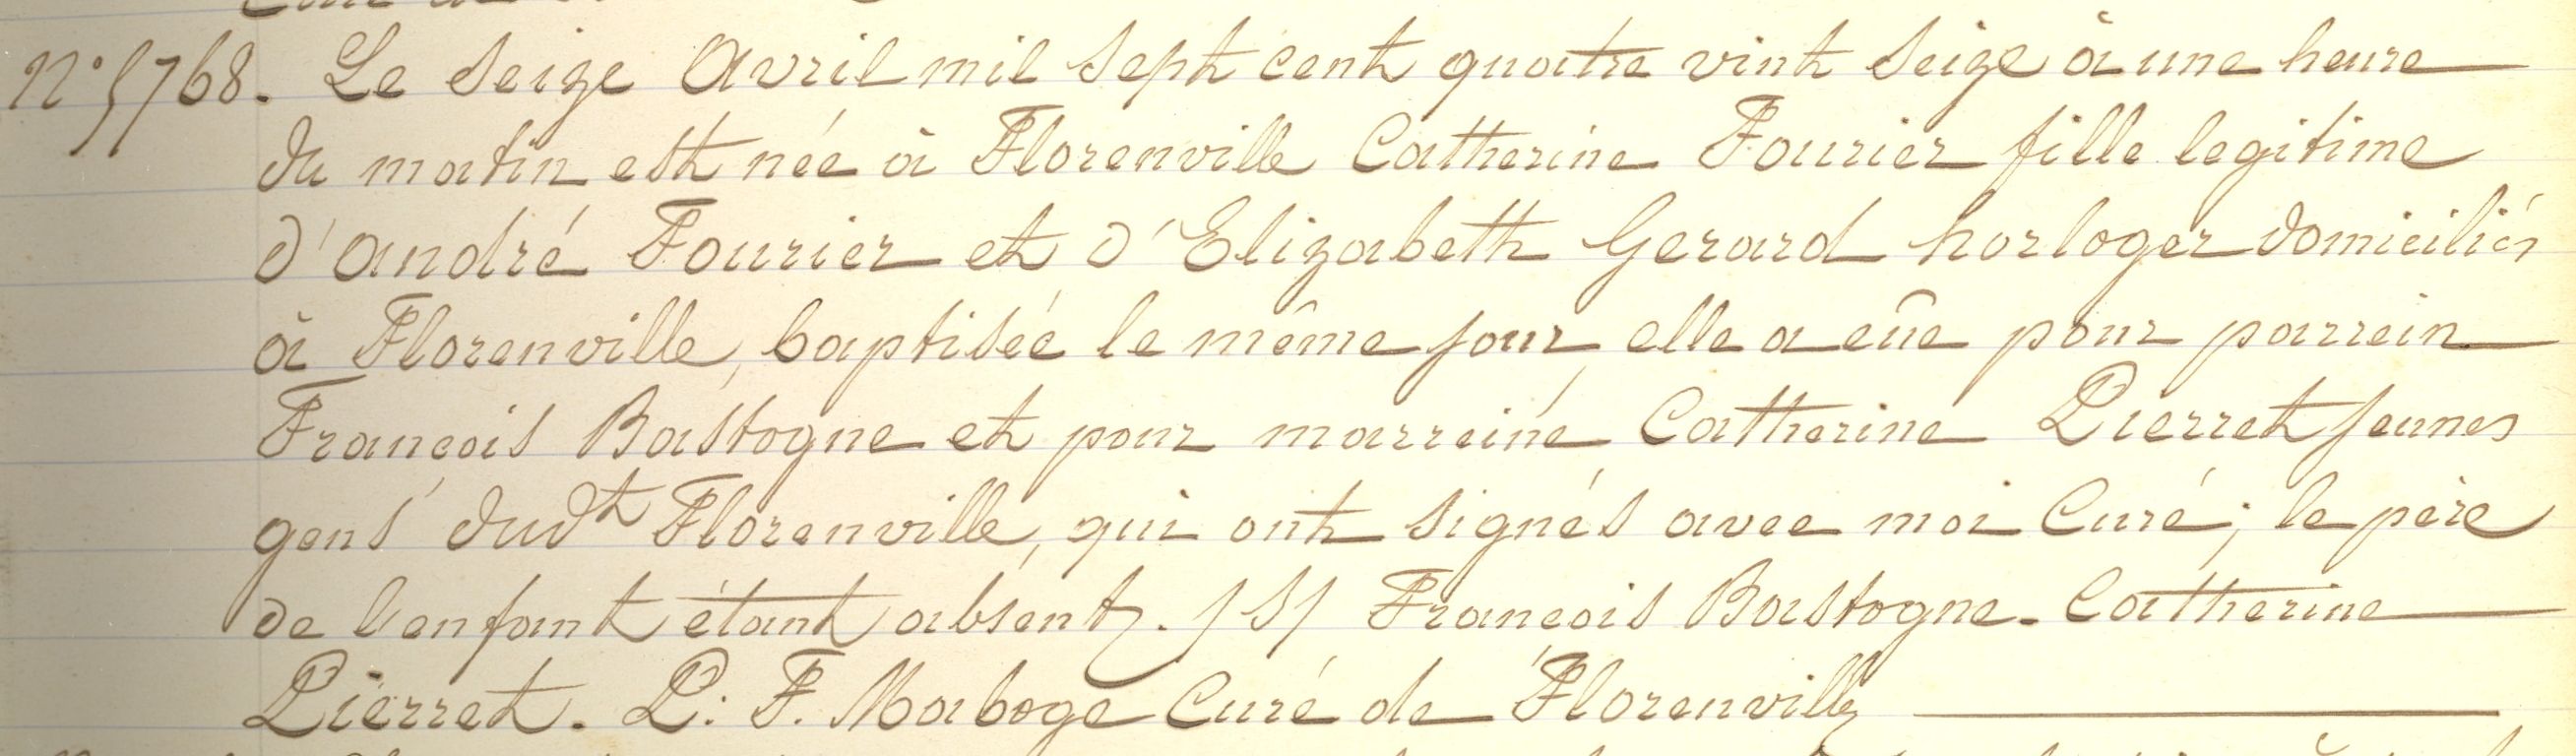 N° 5768. Le seize Avril mil sept cent quatre vint seize à une heure
du matin est née à Florenville Catherine Fourier fille legitime
d'André Fourier et d'Elizabeth Gerard horloger domiciliés
à Florenville, baptisée le même jour, elle a eûe pour parrein
François Bastogne et pour marreine Catherine Pierret jeunes
gens dudt Florenville, qui ont signés avec moi Curé; le père
de l'enfant étant absent. /S/ François Bastogne. Catherine
Pierret. P: F. Maboge Curé de Florenville